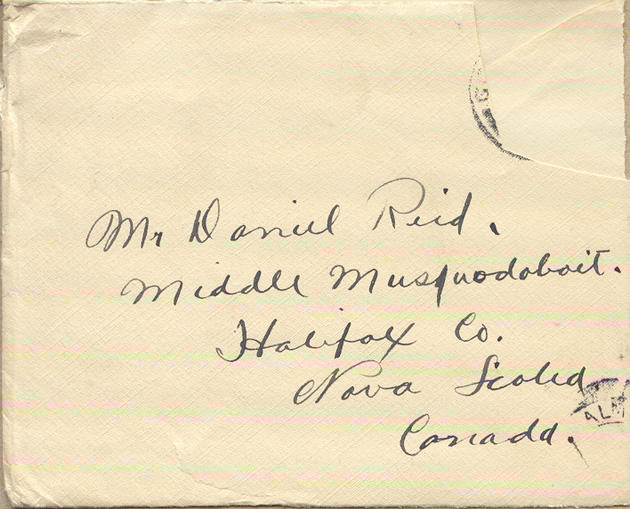 Mr Daniel Reid.
Middle Musquodoboit.
Halifax Co.
Nova Scotia
Canada.